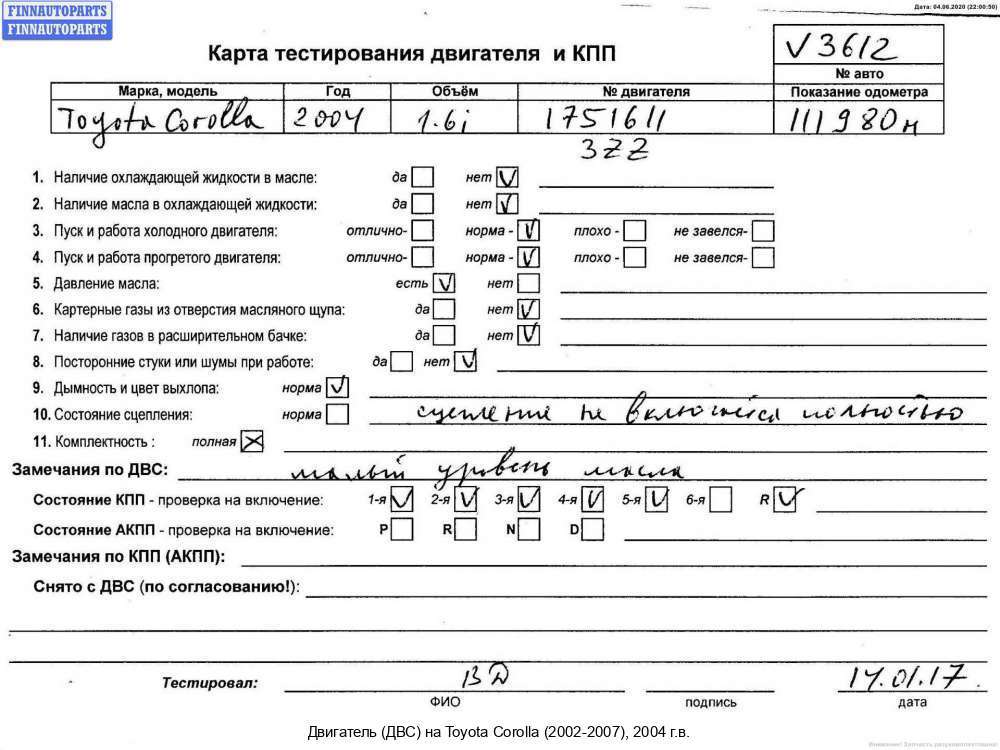 FINNAUTOPARTS
FINNAUTOPARTS
Дата: 04.06.2020 (22:00:50)
Карта тестирования двигателя и КПП
V3612
№ авто
Марка, модель Год Объём № двигателя Показание одометра
Toyota Corolla 2004 1.6i 1751611 111980
3ZZ
1. Наличие охлаждающей жидкости в масле: да нет V
2. Наличие масла в охлаждающей жидкости: да нет V
3. Пуск и работа холодного двигателя: отлично- норма - V плохо - не завелся-
4. Пуск и работа прогретого двигателя: отлично- норма - V плохо - не завелся-
5. Давление масла: есть V нет
6. Картерные газы из отверстия масляного щупа: да нет V
7. Наличие газов в расширительном бачке: да нет V
8. Посторонние стуки или шумы при работе: да нет V
9. Дымность и цвет выхлопа: норма V
10. Состояние сцепления: норма сцепление не включается полностью
11. Комплектность : полная X
Замечания по ДВС: малый уровень масла
Состояние КПП - проверка на включение: 1-я V 2-я V 3-я V 4-я V 5-я V 6-я R V
Состояние АКПП - проверка на включение: P R N D
Замечания по КПП (АКПП):
Снято с ДВС (по согласованию!):
Тестировал: ВД 14.01.17.
ФИО подпись дата
Двигатель (ДВС) на Toyota Corolla (2002-2007), 2004 г.в.